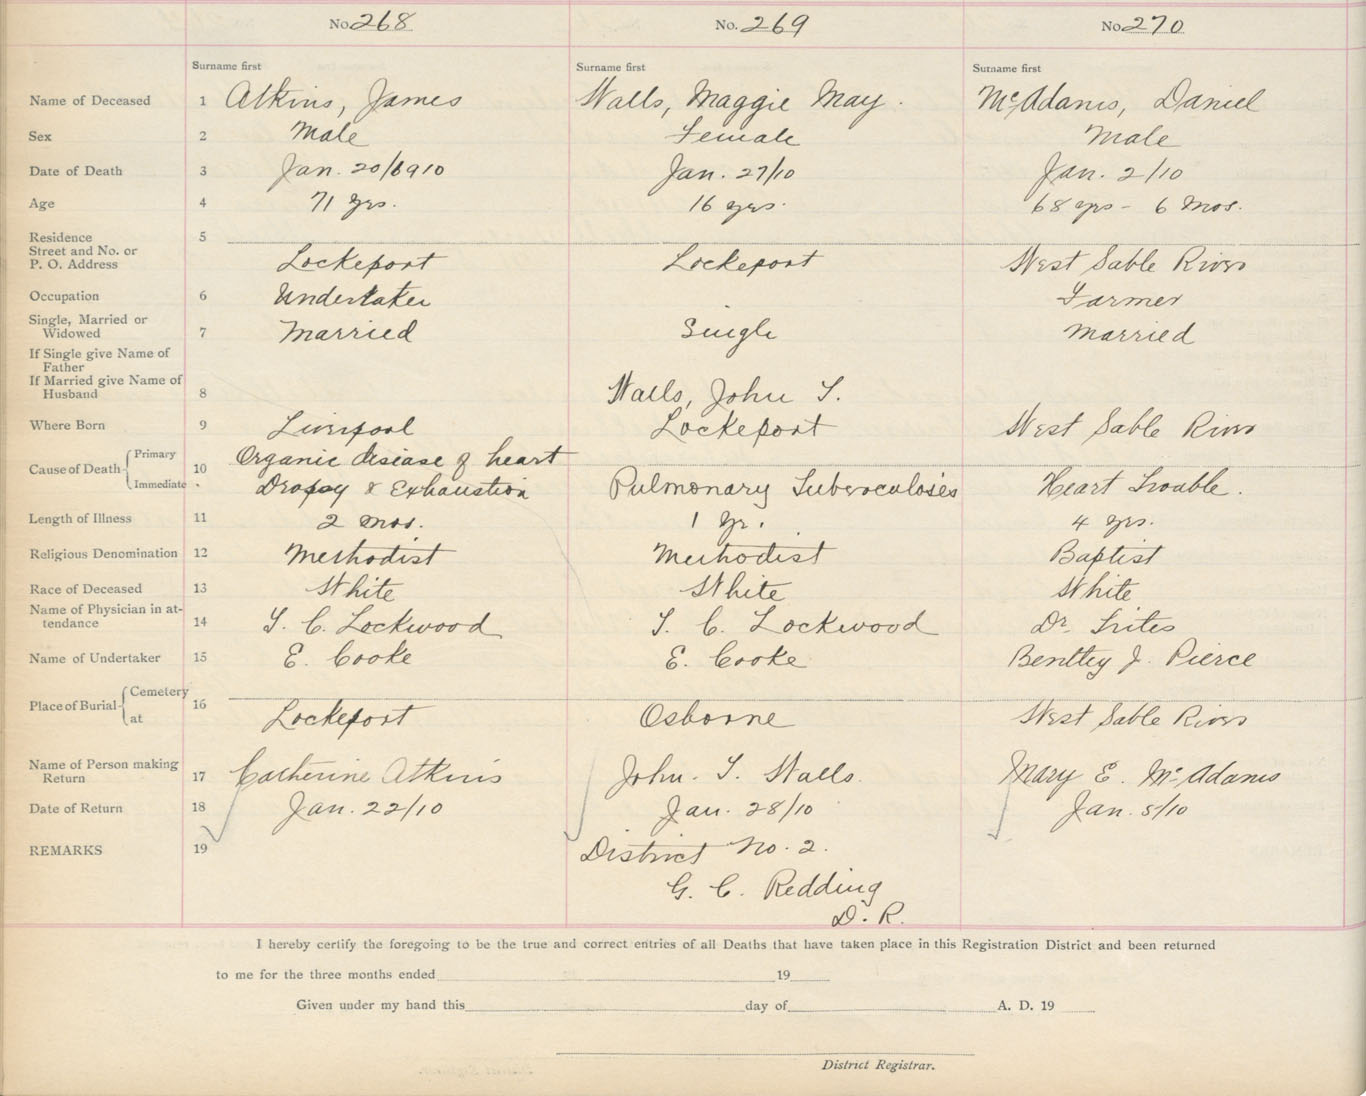 No. 268 No. 269 No. 270
Surname first Surname first Surname first
Name of Deceased 1 Atkins, James Walls, Maggie May. McAdams, Daniel
Sex 2 Male Female Male
Date of Death 3 Jan. 20/1910 Jan. 27/10 Jan. 2/10
Age 4 71 yrs. 16 yrs. 68 yrs - 6 Mos.
Residence 5
Street and No. or
P. O. Address Lockeport Lockeport West Sable River
Occupation 6 Undertaker Farmer
Single, Married or
Widowed 7 Married Single Married
If Single give Name of
Father
If Married give Name of
Husband 8 Walls, John T.
Where Born 9 Liverpool Lockeport West Sable River
Cause of Death Primary 10 Organic disease of heart
Immediate Dropsy & Exhaustion Pulmonary Tuberculosis Heart Trouble.
Length of Illness 11 2 mos. 1 Yr. 4 yrs.
Religious Denomination 12 Methodist Methodist Baptist
Race of Deceased 13 White White White
Name of Physician in at-
tendance 14 T. C. Lockwood T. C. Lockwood Dr. Trites
Name of Undertaker 15 E. Cooke E. Cooke Bentley J. Pierce
Place of Burial Cemetery 16
at Lockeport Osborne West Sable River
Name of Person making
Return 17 Catherine Atkins John. T. Walls. Mary E. McAdams
Date of Return 18 Jan. 22/10 Jan. 28/10 Jan. 5/10
REMARKS 19 District No. 2.
G. C. Redding
D. R.
I hereby certify the foregoing to be the true and correct entries of all Deaths that have taken place in this Registration District and been returned
to me for the three months ended 19
Given under my hand this day of A. D. 19
District Registrar.